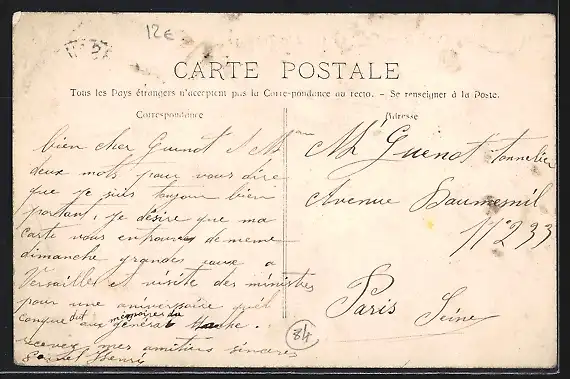 12€
CARTE POSTALE
Tous les Pays étrangers n'acceptent pas la Correspondance au recto. - Se renseigner à la Poste.
Correspondance
Adresse
bien cher Guenot
deux mots pour vous dire
que je suis toujour bien
portant, je désire que ma
carte vous entrouve de meme
dimanche grandes eaux a
Versailles et visite des ministres
pour une aniversaire
dit mémoires du
aux général
recevez mes amitiers sinceres
Henri
Mr Guenot tonnelier
Avenue Daumesnil
N° 233
Paris
Seine
84